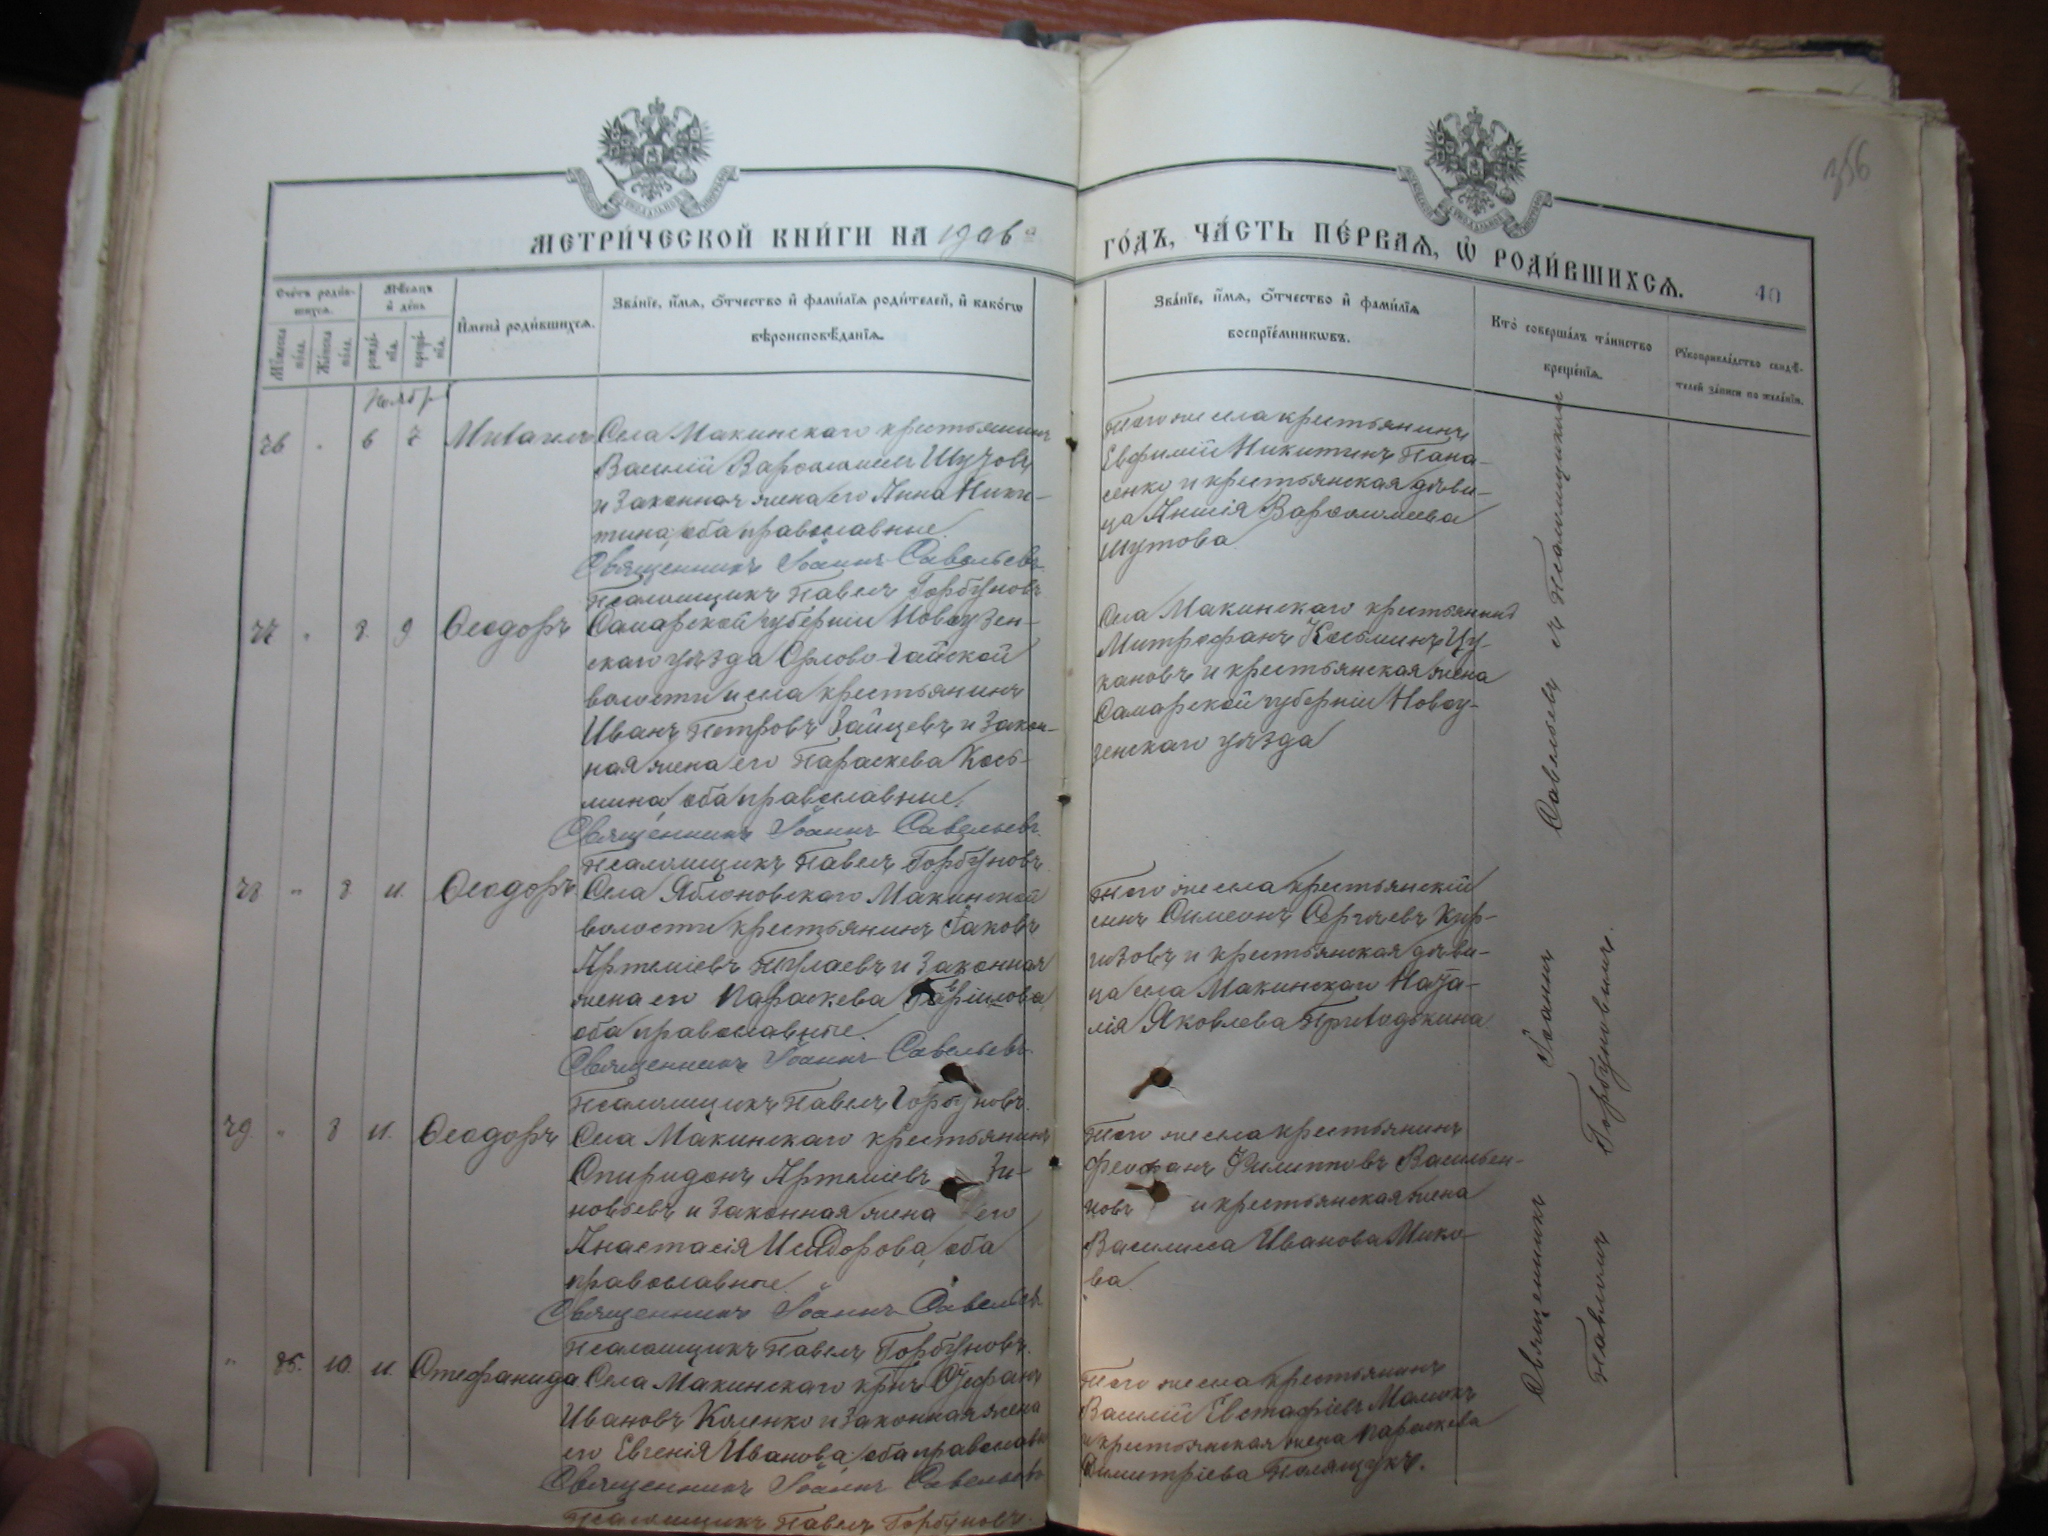 356
МЕТРИ́ЧЕСКОЙ КНИ́ГИ НА 1906 го
ГО́ДЪ, ЧА́СТЬ ПЕ́РВАѦ, Ѡ РОДИ́ВШИХСѦ.
40
Сче́тъ роди́в-
шихсѧ.
Мѣ́сѧцъ
и де́нь
Имена̀ роди́вшихсѧ.
Зва́нїе, и́мѧ, ѻ́тчество и фами́лїѧ роди́телей, и како́гѡ
вѣроисповѣ́данїѧ.
Му́жеска
по́ла.
Же́нска
по́ла.
рожде́-
нїѧ.
креще́-
нїѧ.
Зва́нїе, и́мѧ, ѻ́тчество и фами́лїѧ
воспрїе́мникѡвъ.
Кто̀ соверша́лъ та́инство
креще́нїѧ.
Рꙋкоприкла́дство свидѣ́-
телей за́писи по жела́нїю.
Ноябрь
76 " 6 7 Михаилъ
Села Макинскаго крестьянинъ
Василій Варѳоломеевъ Шутовъ
и законная жена его Анна Ники-
тина, оба православные.
Священникъ Іоаннъ Савельевъ.
Псаломщикъ Павелъ Горбуновъ.
Того же села крестьянинъ
Евфимій Никитинъ Пана-
сенко и крестьянская дѣви-
ца Варѳоломеева
Шутова
77 " 8 9 Ѳеодоръ
Самарской губерніи Новоузен-
скаго уѣзда Орлово-Гайской
волости и села крестьянинъ
Иванъ Петровъ Зайцевъ и закон-
ная жена его Параскева Кось-
мина, оба православные.
Священникъ Іоаннъ Савельевъ.
Псаломщикъ Павелъ Горбуновъ.
Села Макинскаго крестьянинъ
Митрофанъ Косьминъ Цу-
кановъ и крестьянская жена
Самарской губерніи Новоу-
зенскаго уѣзда
78 " 8 11. Ѳеодоръ
Села Яблоновскаго Макинской
волости крестьянинъ Іаковъ
Артеміевъ и законная
жена его Параскева Гавріилова
оба православные.
Священникъ Іоаннъ Савельевъ
Псаломщикъ Павелъ Горбуновъ.
Того же села крестьянскій
сынъ Симеонъ Сергѣевъ Кир-
гизовъ и крестьянская дѣви-
ца села Макинскаго Ната-
лія Яковлева Приходькина
79. " 8 11. Ѳеодоръ
Села Макинскаго крестьянинъ
Спиридонъ Артеміевъ Зи-
новьевъ и законная жена его
Анастасія Исидорова, оба
православные.
Священникъ Іоаннъ Савельевъ
Псаломщикъ Павелъ Горбуновъ.
Того же села крестьянинъ
Феофанъ Филипповъ Васильен-
ковъ и крестьянская жена
Василисса Иванова
ва
" 85. 10. 11 Стефанида
Села Макинскаго кр-нъ Стефанъ
Ивановъ Коленко и законная жена
его Евгенія Иванова, оба православн
Священникъ Іоаннъ Савельевъ
Псаломщикъ Павелъ Горбуновъ.
Того же села крестьянинъ
Василій Евстафіевъ
и крестьянская жена Параскева
Димитріева Полящукъ.
Священникъ Іоаннъ Савельевъ съ Псаломщикомъ
Павломъ Горбуновымъ.